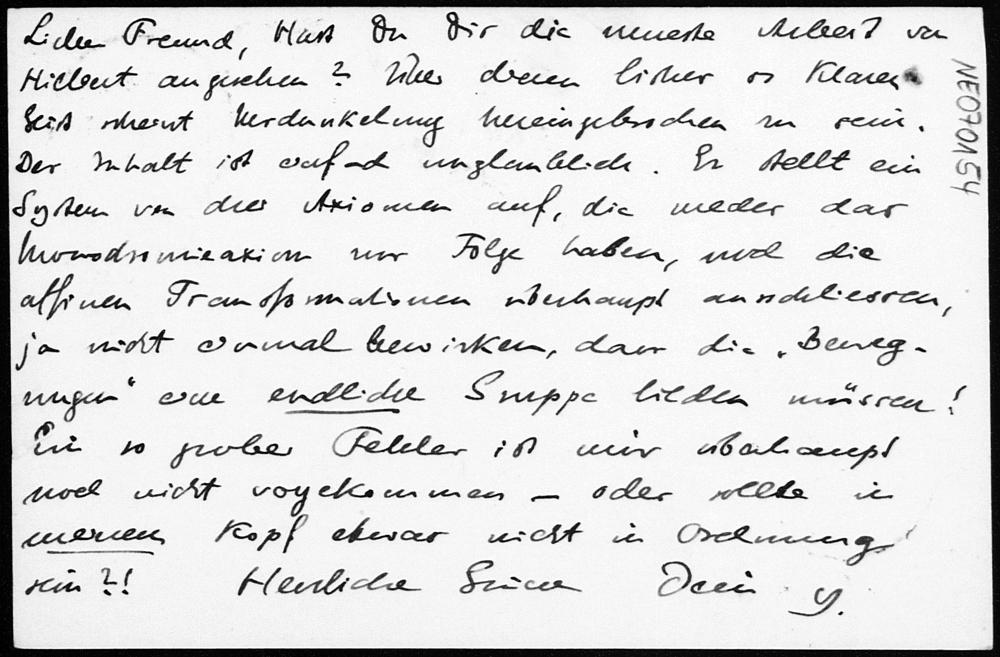 Lieber Freund, Hast Du Dir die neueste Arbeit von
Hilbert angesehen? Über deren bisher so klaren
Geist scheint Verdunkelung hereingebrochen zu sein.
Der Inhalt ist einfach unglaublich. Er stellt ein
System von drei Axiomen auf, die weder das
Monodromieaxiom zur Folge haben, noch die
affinen Transformationen überhaupt ausschliessen,
ja nicht einmal bewirken, dass die „Beweg-
ungen“ eine endliche Gruppe bilden müssen!
Ein so grober Fehler ist mir überhaupt
noch nicht vorgekommen – oder sollte in
meinem Kopf etwas nicht in Ordnung
sein?! Herzliche Grüsse Dein
NE070154